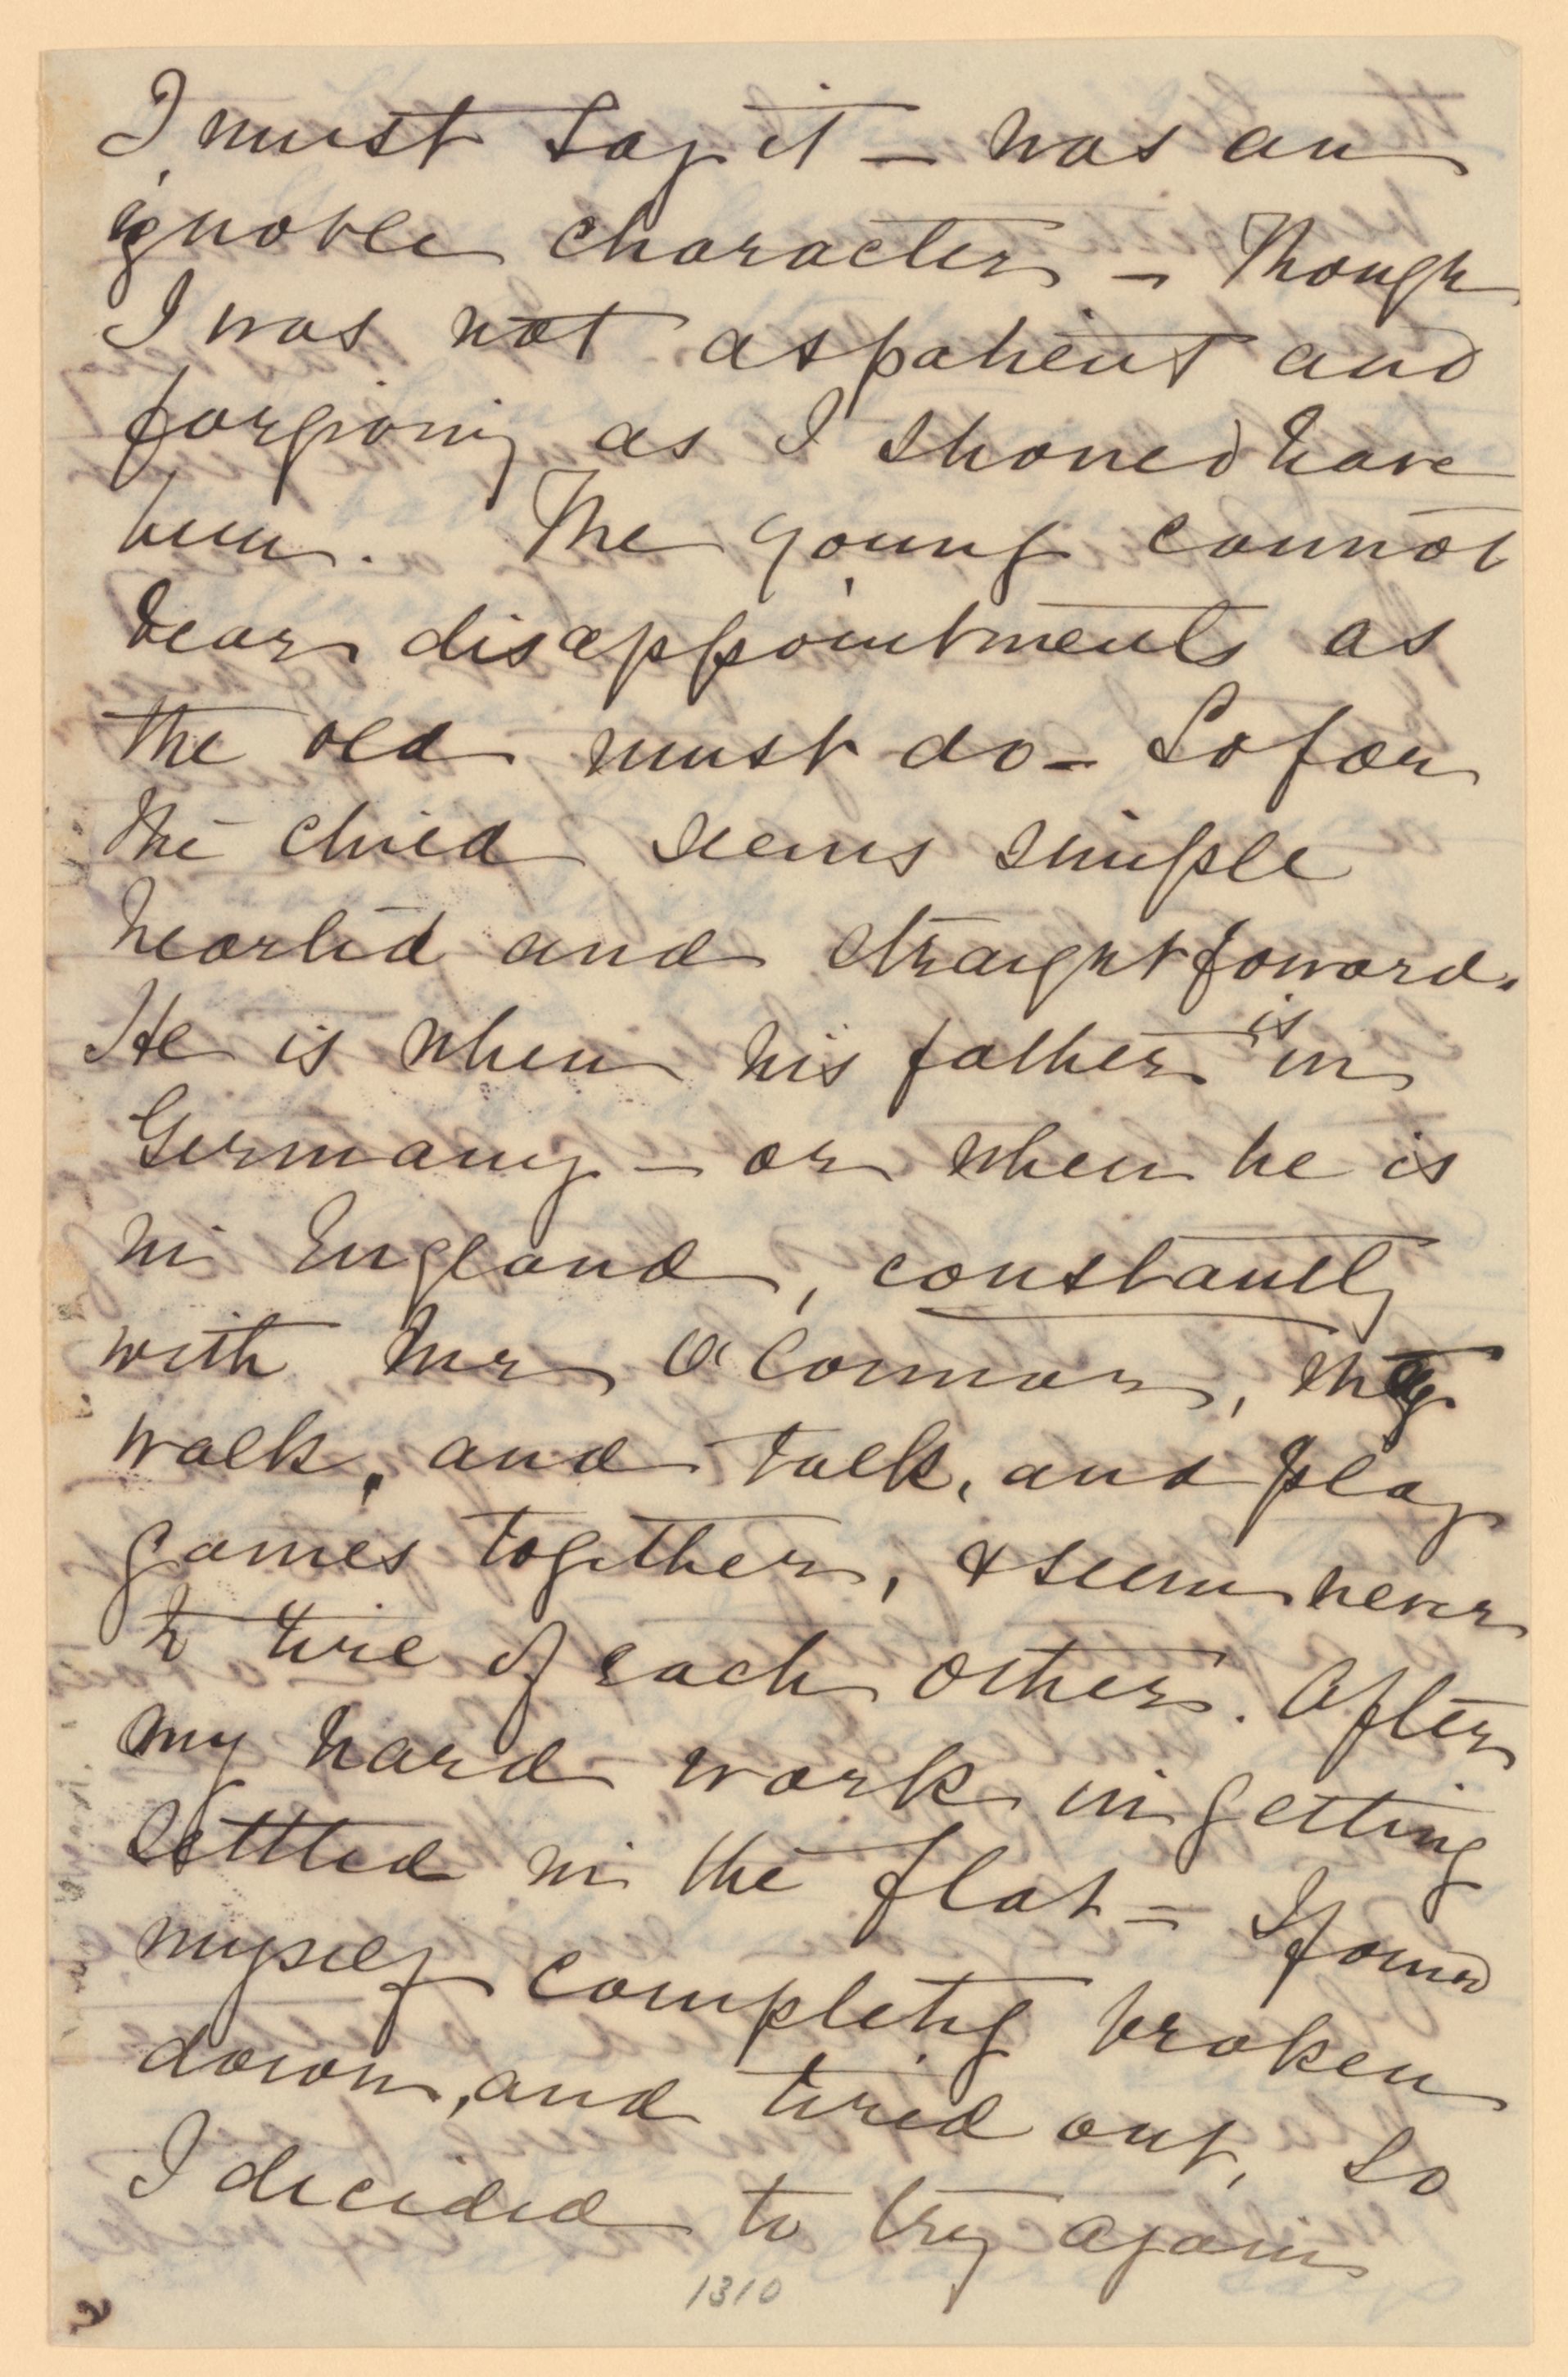 I must say it – was an
ignoble character – Though
I was not as patient and
forgiving as I should have
been. The young cannot
bear disappointments as
the old must do – So far
the child seems simple
hearted and straightfoward.
He is when his father is in
Germany – or when he is
in England, constantly
with Mr O'Connor, they
walk, and talk, and play
games together, & seem never
to tire of each other. After
my hard work in getting
settled in the flat – I found
myself completely broken
down, and tired out, so
I decided to try again
1310